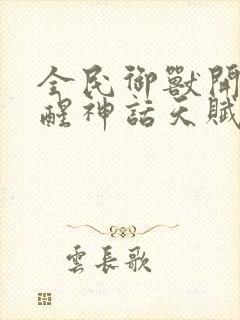 全民御獸開
醒神話天賦
雲長歌